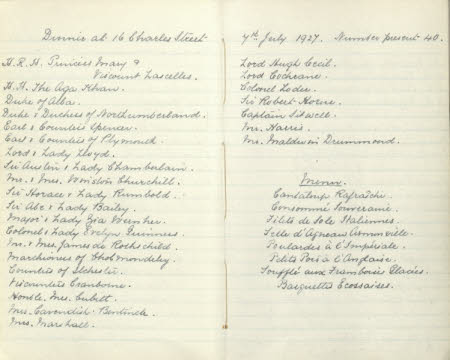 Dinner at 16 Charles Street
H.R.H. Princess Mary &
Viscount Lascelles.
H.H. The Aga Khan.
Duke of Alba.
Duke & Duchess of Northumberland.
Earl & Countess Spencer.
Earl & Countess of Plymouth.
Lord & Lady Lloyd.
Sir Austin & Lady Chamberlain.
Mr. & Mrs. Winston Churchill.
Sir Horace & Lady Rumbold.
Sir Abe & Lady Bailey.
Major & Lady Zia Wernher.
Colonel & Lady Evelyn Guinness.
Mr. & Mrs. James de Rothschild.
Marchioness of Cholmondeley.
Countess of Ilchester.
Viscountess Cranborne.
Honble. Mrs. Cubitt.
Mrs. Cavendish-Bentinck.
Mrs. Marshall.
7th July 1927. Number present 40.
Lord Hugh Cecil.
Lord Cochrane.
Colonel Loder.
Sir Robert Horne.
Captain Sitwell.
Mr. Harris.
Mr. Maldwin Drummond.
Menu.
Cantaloup Rafraîchi.
Consommé Souveraine.
Filets de Sole Italiennes.
Selle d'Agneau Armonville.
Poulardes à l'Impériale.
Petits Pois à l'Anglaise.
Soufflé aux Framboises Glacées.
Barquettes Ecossaises.